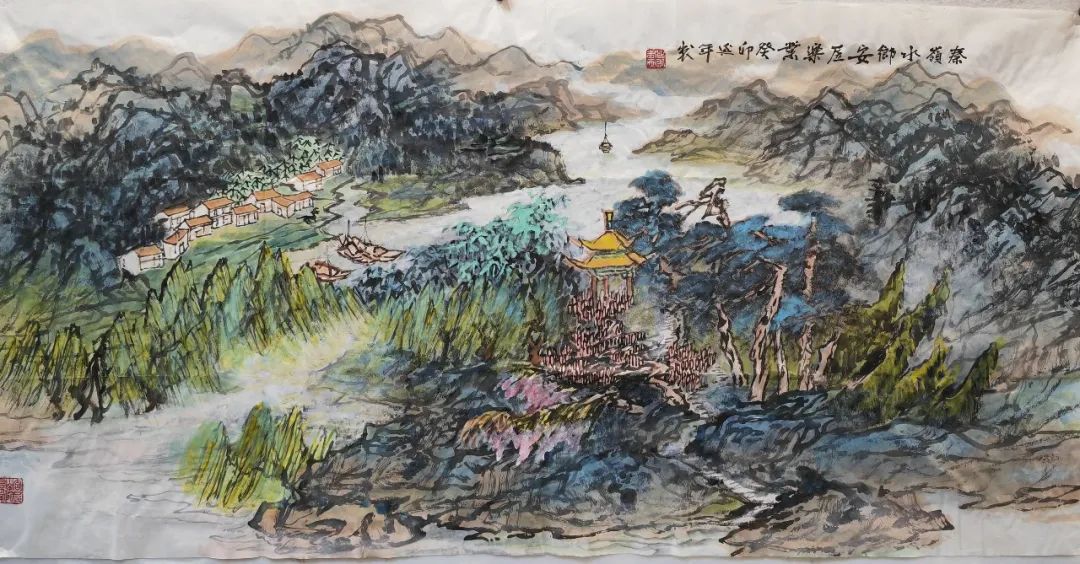 秦嶺水鄉安居樂業癸卯延年